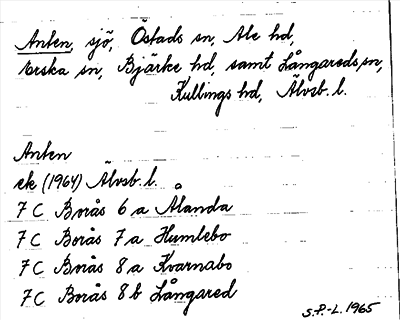 Anten, sjö, Östads sn, Ale hd,
Erska sn, Bjärke hd, samt Långareds sn,
Kullings hd, Älvsb. l.
Anten
ek (1964) Älvsb. l.
7 C Borås 6 a Ålanda
7 C Borås 7 a Humlebo
7 C Borås 8 a Kvarnabo
7 C Borås 8 b Långared
S.P.-L. 1965